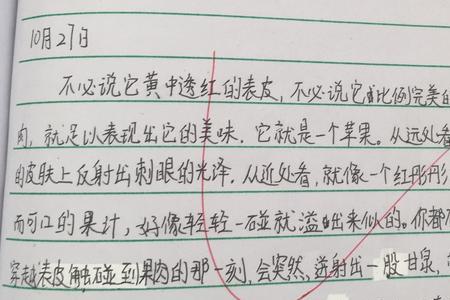 10月27日
不必说它黄中透红的表皮，不必说它比例完美的
肉，就足以表现出它的美味。它就是一个苹果。从远处看
的皮肤上反射出刺眼的光泽。从近处看，就像一个红彤彤
而可口的果汁，好像轻轻一碰就溢出来似的。你都
穿越表皮触碰到果肉的那一刻，会突然迸射出一股甘泉，